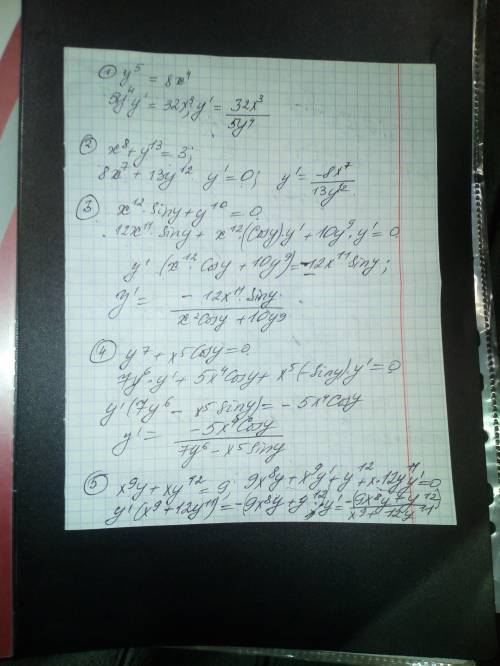 ① y⁵ = 8x⁴
5y⁴y' = 32x³; y' = 32x³/5y⁴
② x⁸ + y¹³ = 3;
8x⁷ + 13y¹² y' = 0; y' = -8x⁷/13y¹²
③ x¹²·Siny + y¹⁰ = 0
12x¹¹·Siny + x¹²(Cosy)·y' + 10y⁹·y' = 0
y' (x¹²·Cosy + 10y⁹) = -12x¹¹Siny;
y' = -12x¹¹·Siny/x¹²Cosy + 10y⁹
④ y⁷ + x⁵Cosy = 0
7y⁶·y' + 5x⁴Cosy + x⁵(-Siny)·y' = 0
y'(7y⁶ - x⁵Siny) = -5x⁴Cosy
y' = -5x⁴Cosy/7y⁶ - x⁵Siny
⑤ x⁹y + xy¹² = 9; 9x⁸y + x⁹y' + y¹² + x·12y¹¹y' = 0
y'(x⁹ + 12y¹¹) = -(9x⁸y + y¹²); y' = -9x⁸y + y¹²/x⁹ + 12y¹¹